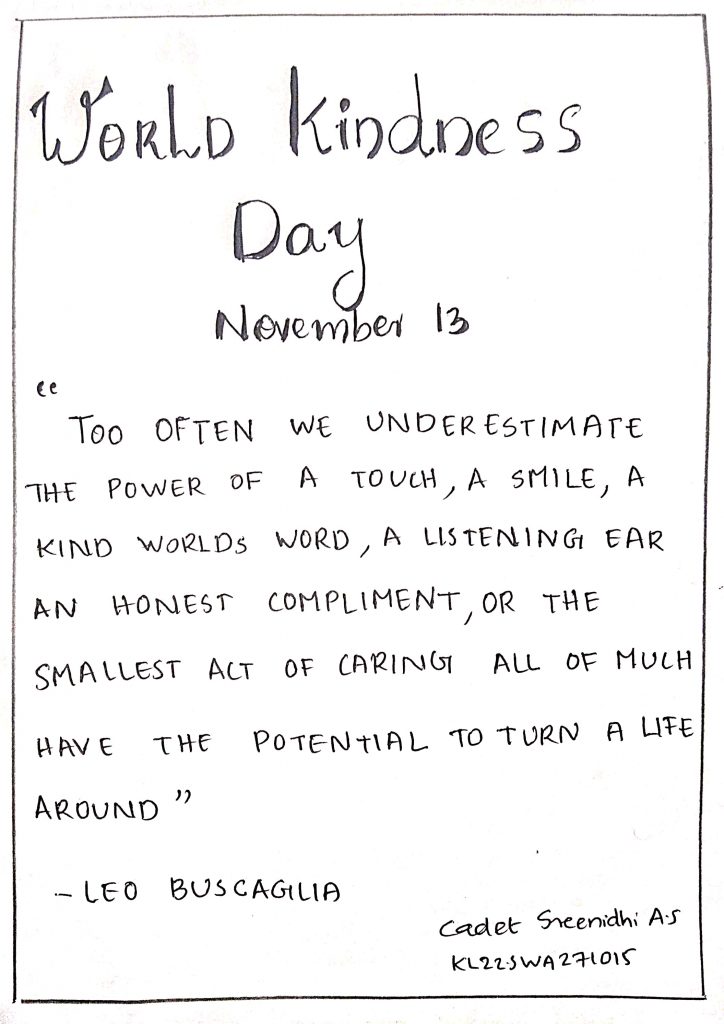 World Kindness
Day
November 13
“
Too OFTEN WE UNDERESTIMATE
THE POWER OF A TOUCH, A SMILE, A
KIND WORLDS WORD, A LISTENING EAR
AN HONEST COMPLIMENT, OR THE
SMALLEST ACT OF CARING ALL OF MUCH
HAVE THE POTENTIAL TO TURN A LIFE
AROUND”
- LEO BUSCAGILIA
Cadet Sreenidhi A.S
KL22SWA271015